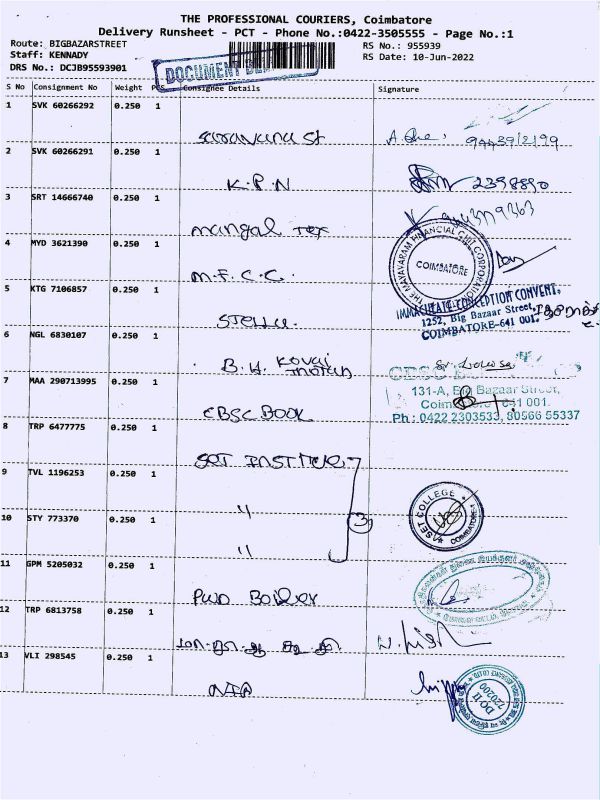 THE PROFESSIONAL COURIERS, Coimbatore
Delivery Runsheet - PCT - Phone No.:0422-3505555 - Page No.:1
Route: BIGBAZARSTREET RS No.: 955939
Staff: KENNADY RS Date: 10-Jun-2022
DRS No.: DCJB95593901
DOCUMENT
S No Consignment No Weight PCS Consignee Details Signature
1 SVK 60266292 0.250 1
Saravana St
2 SVK 60266291 0.250 1
K.P.N 2398890
3 SRT 14666740 0.250 1
mangal Tex
4 MYD 3621390 0.250 1
M.F.C.C.
THE MAYAVARAM FINANCIAL CHIT CORPORATION
COIMBATORE
5 KTG 7106857 0.250 1
Stella.
IMMACULATE CONCEPTION CONVENT.
1252, Big Bazaar Street,
COIMBATORE-641 001.
6 NGL 6830107 0.250 1
B.H. Kovai
7 MAA 290713995 0.250 1
CBSC BOOK
131-A, Big Bazaar Street,
Coimbatore 641 001.
Ph : 0422 2303533, 80566 55337
8 TRP 6477775 0.250 1
SET INSTITUTE
9 TVL 1196253 0.250 1
"
3
SET COLLEGE
COIMBATORE
10 STY 773370 0.250 1
"
11 GPM 5205032 0.250 1
PWD Boiler
12 TRP 6813758 0.250 1
13 VLI 298545 0.250 1
NIA
DO:II
720200